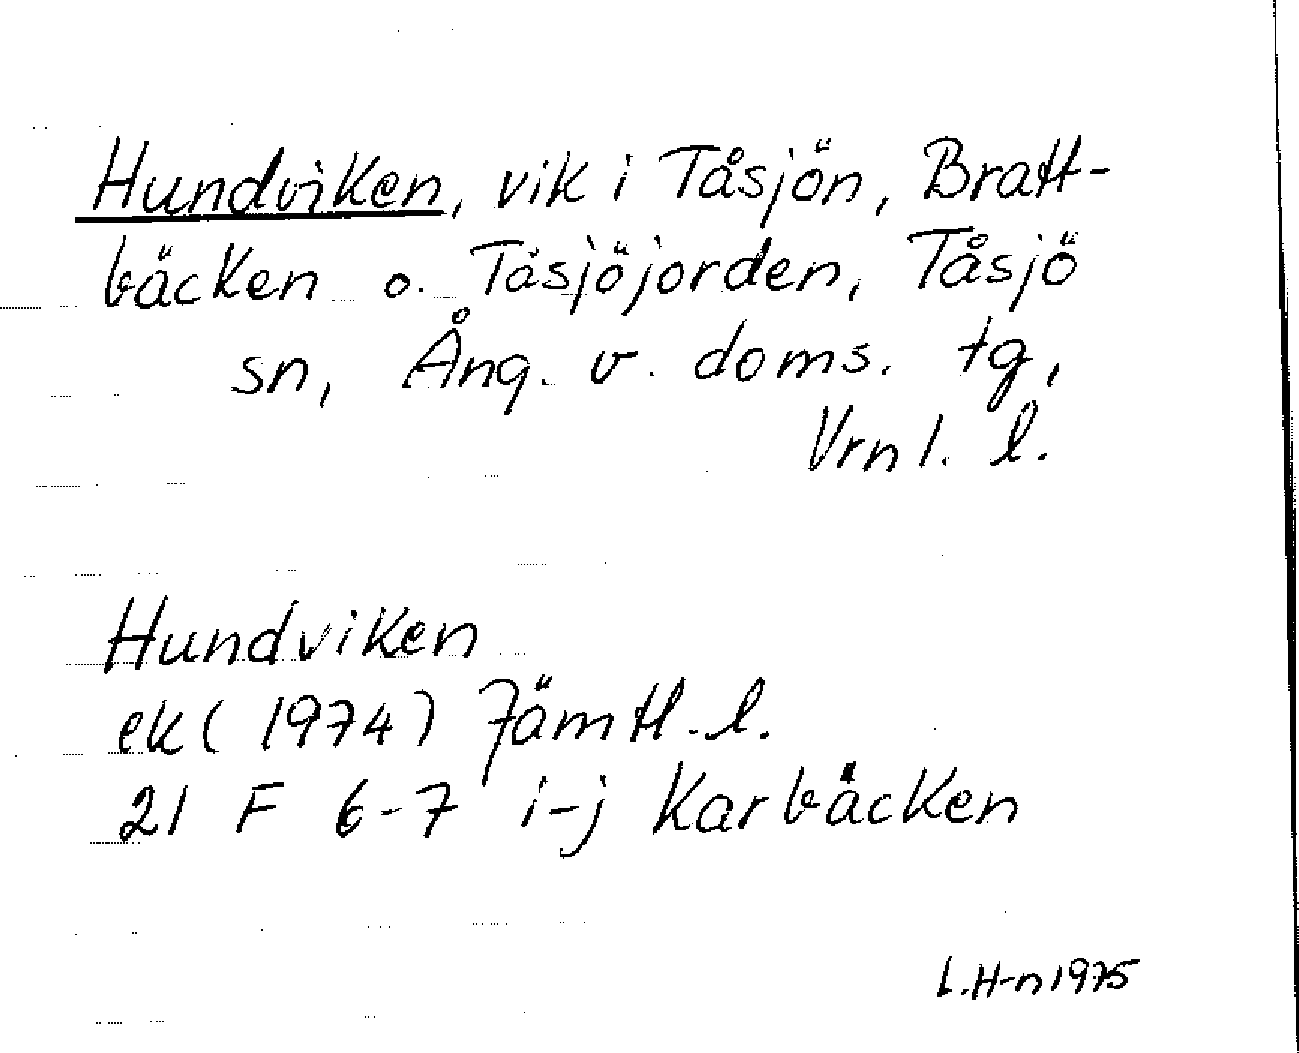 Hundviken, vik i Tåsjön, Bratt-
bäcken o. Tåsjöjorden, Tåsjö
sn, Ång. v. doms. tg,
Vrnl. l.
Hundviken
ek (1974) Jämtl. l.
21 F 6-7 i-j Karbäcken
L.H-n 1975